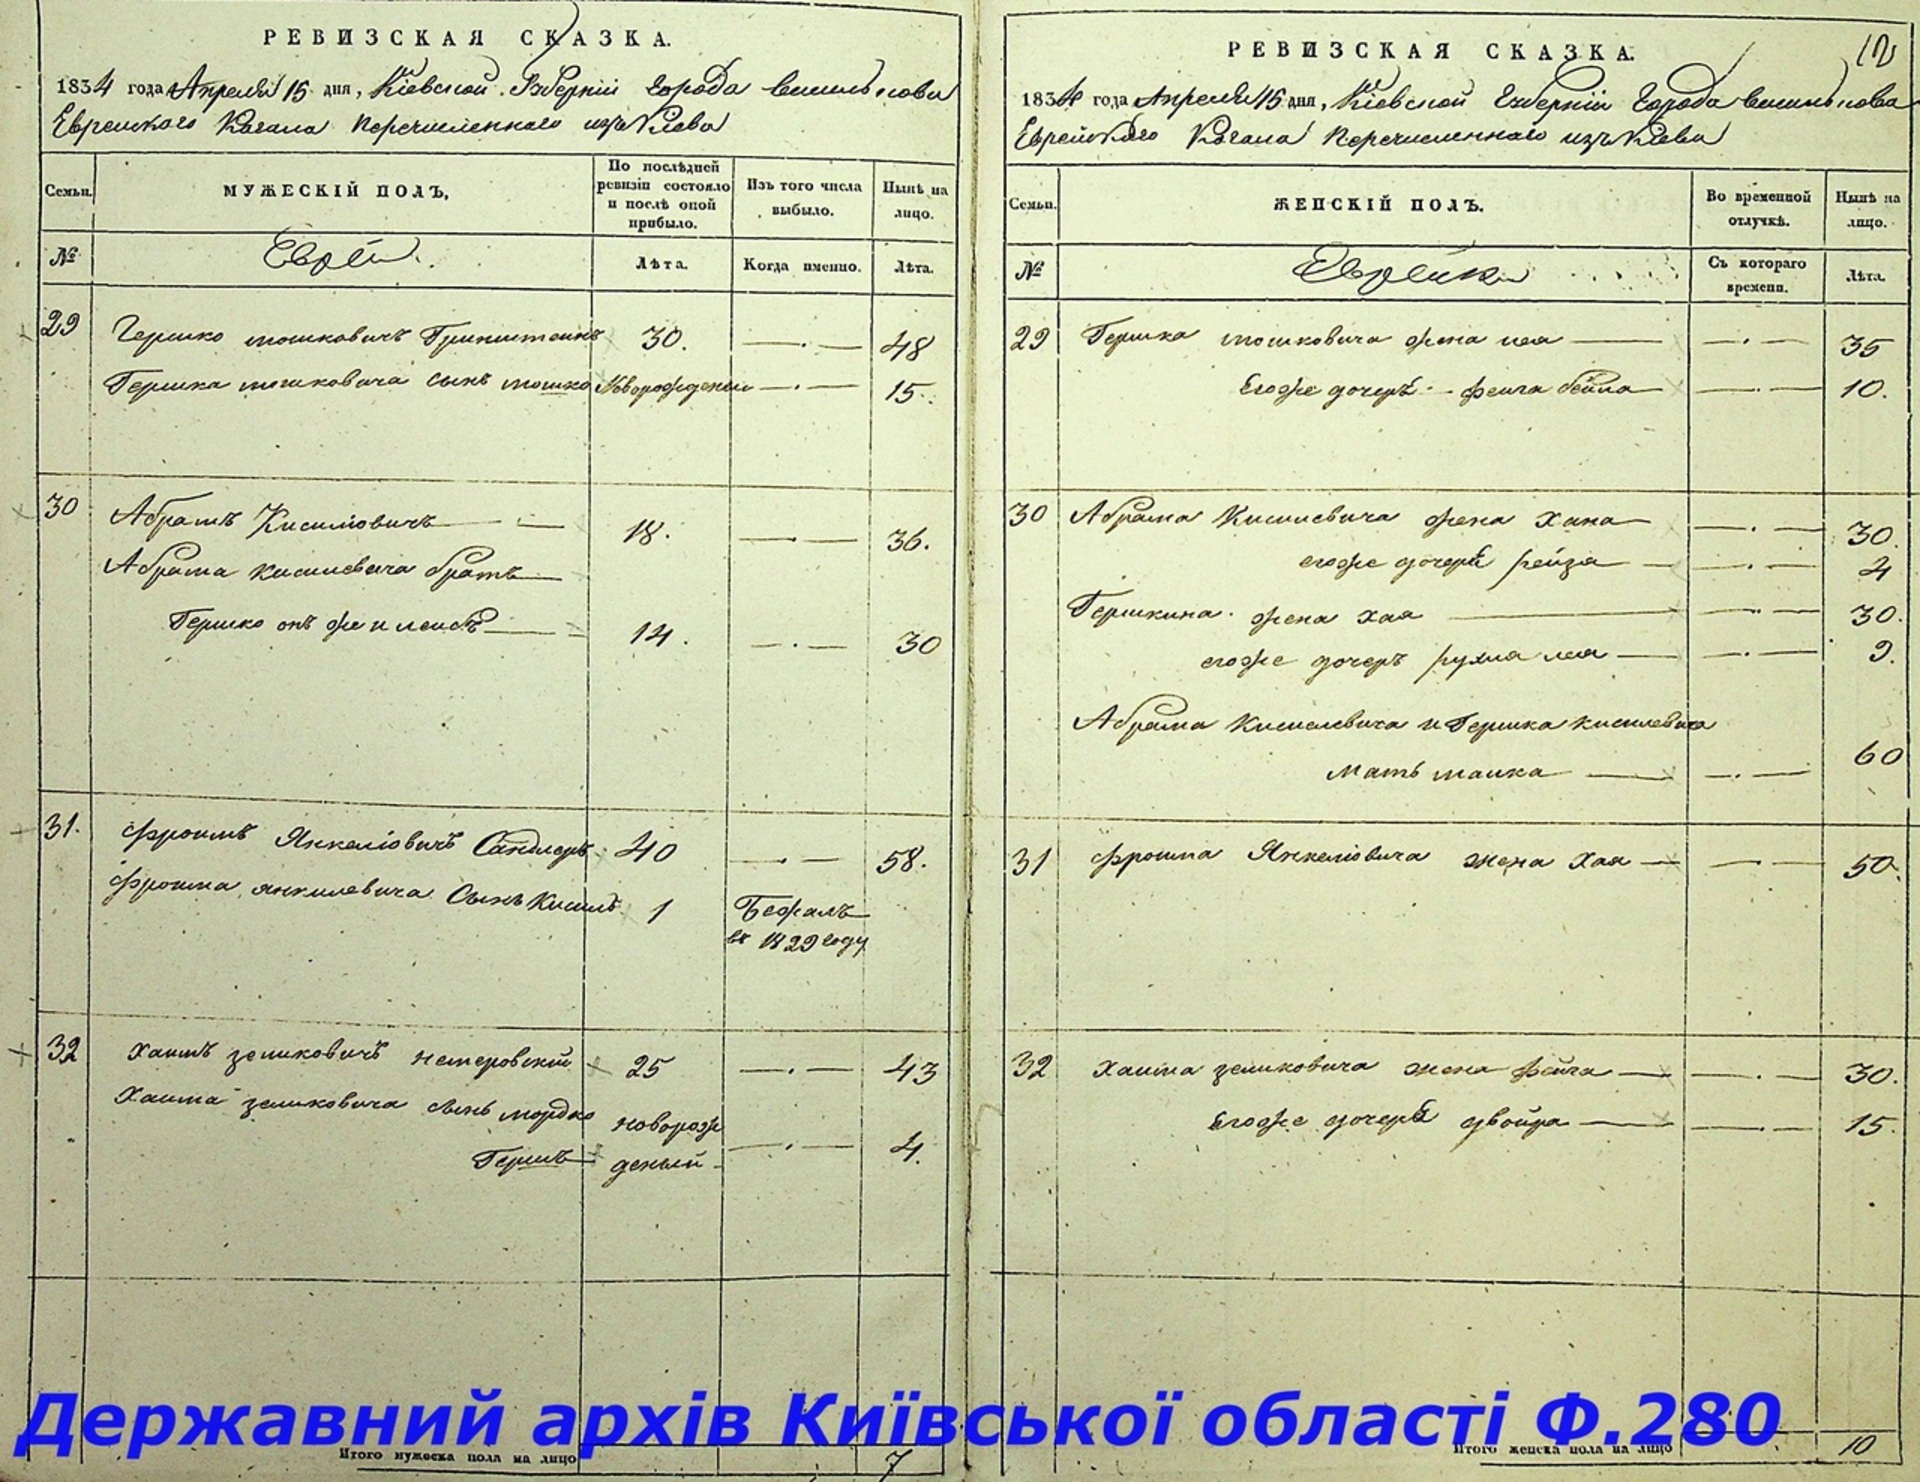 РЕВИЗСКАЯ СКАЗКА.
1834 года Апреля 15 дня, Кіевской Губерніи Города Василькова
Еврейского Кагала Перечисленнаго изъ Кіева
Семьи.
МУЖЕСКІЙ ПОЛЪ,
По послѣдней ревизіи состояло и послѣ оной прибыло.
Изъ того числа выбыло.
Нынѣ на лицо.
№
Евреи.
Лѣта.
Когда именно.
Лѣта.
29 Гершко Мошковичъ Гринштеинъ 30. 48
Гершка Мошковича сынъ Мошко Новорожденый 15.
30 Абрамъ Кисилювичъ 18. 36.
Абрама Кисилевича братъ
Гершко онъ же и Леибъ 12. 30
31. Фроимъ Янкелювичъ Сандлеръ 40 58.
Фроима Янкилевича Сынъ Кисиль 1 Бежалъ
въ 1829 году
32 Хаимъ Зеликовичъ Нетеровскій 25 43
Хаима Зеликовича сынъ Мордко новорож
Гершъ деный 4.
Итого мужеска пола на лицо 7
РЕВИЗСКАЯ СКАЗКА.
1834 года Апреля 15 дня, Кіевской Губерніи Города Василькова
Еврейскаго Кагала Перечисленнаго изъ Кіева
Семьи.
ЖЕНСКІЙ ПОЛЪ.
Во временной отлучкѣ.
Нынѣ на лицо.
№
Еврейки
Съ котораго времени.
Лѣта.
29 Гершка Мошковича жена Лея 35
Егоже дочерь Феига Бейла 10.
30 Абрама Кисилевича жена Хана 30.
егоже дочерь Рейза 4
Гершкина жена Хая 30.
егоже дочеръ Рухля Лея 9.
Абрама Кисилевича и Гершка Кисилевича
мать Малка 60
31 Фроима Янкелювича жена Хая 50.
32 Хаима Зеликовича жена Фейга 30.
Егоже дочерь Двойра 15.
Итого женска пола на лицо 10
Державний архів Київської області Ф.280